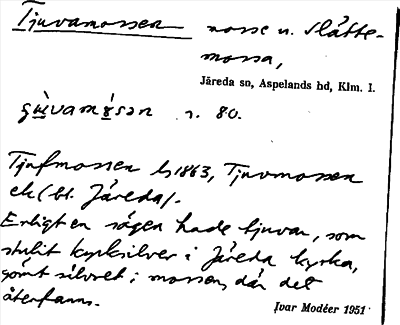 Tjuvamossen mosse n. Slätte-
mossa,
Järeda sn, Aspelands hd, Klm. l.
r. 80.
Tjufmossen h 1863, Tjuvmossen
ek (bl. Järeda).
Enligt en sägen hade tjuvar, som
stulit kyrksilver i Järeda kyrka,
gömt silvret i mossen, där det
återfanns.
Ivar Modéer 1951